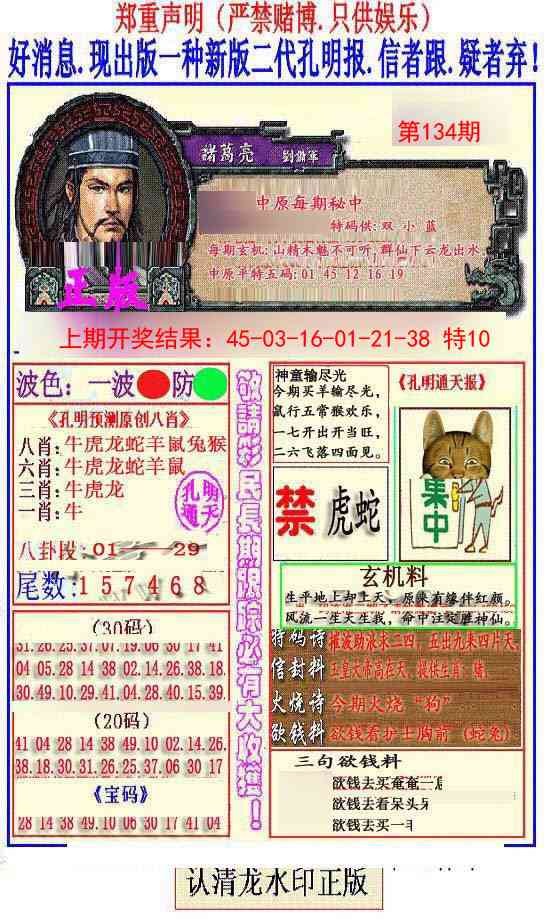 郑重声明（严禁赌博.只供娱乐）
好消息.现出版一种新版二代孔明报.信者跟.疑者弃!
諸葛亮
劉備軍
第134期
中原每期秘中
特码供: 双 小 蓝
每期玄机: 山精木魅不可听, 群仙下云龙出水
中原平特五码: 01 45 12 16 19
正版
上期开奖结果：45-03-16-01-21-38 特10
波色：一波 防
《孔明预测原创八肖》
八肖: 牛虎龙蛇羊鼠兔猴
六肖: 牛虎龙蛇羊鼠
三肖: 牛虎龙
一肖: 牛
孔明
通天
八卦段: 01 29
尾数: 1 5 7 4 6 8
(30码)
31.26.25.37.07.19.06 30 17 41
04 05.28 14 38 02.14 26.13.16
30.49.10.29 41.04 28.40 15.39
(20码)
41 04 28 14 38 49.10 02 14.26.
38.18 30.31.26 25.37.06 30 17
《宝码》
28 14 38 49.10 06 30 17 41 04
敬請彩民長期跟踪必有大收獲！
神童输尽光
今期买羊输尽光，
鼠行五常猴欢乐，
一七开出开当旺，
二六飞落四面见。
《孔明通天报》
禁
虎蛇
集中
玄机料
生平地上却上天，原来有缘伴红颜。
风流一生天生我，命中注定胜神仙。
特码诗
信封料
火烧诗 今期火烧“狗”
欲钱料 欲钱看护士胸前（蛇兔）
三句欲钱料
欲钱去买奄奄一
欲钱去看呆头
欲钱去买一
认清龙水印正版